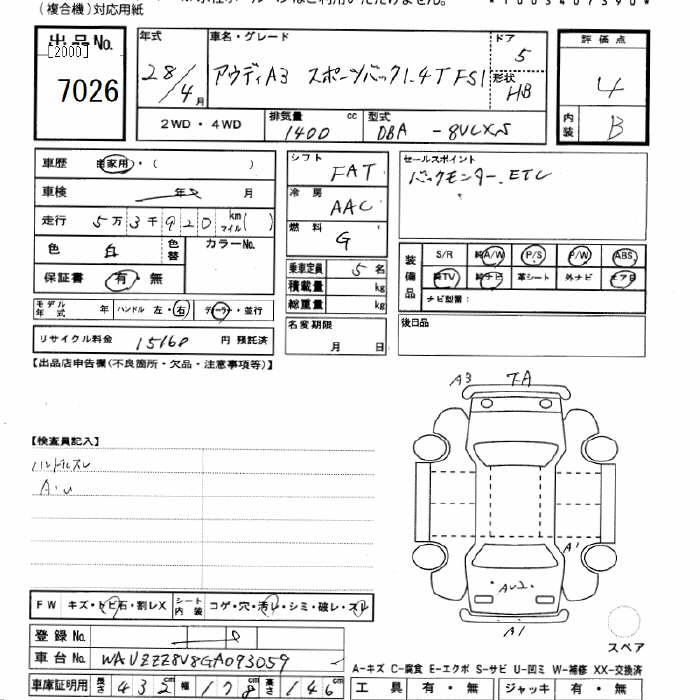 (複合機)対応用紙
出品No.
[2000]
7026
年式
28/4月
車名・グレード
アウディA3 スポーツバック1.4TFSI
ドア
5
形状
HB
評価点
4
内装
B
2WD・4WD
排気量 cc
1400
型式
DBA -8VCXS
車歴 自家用・( )
車検 年 月
走行 5万3千920km マイル( )
色 白 色替 カラーNo.
保証書 有・無
モデル年式 年 ハンドル 左・右 ディーラー・並行
リサイクル料金 15160 円 預託済
シフト FAT
冷房 AAC
燃料 G
乗車定員 5名
積載量 kg
総重量 kg
名変期限
月 日
セールスポイント
バックモニター.ETC
装備品
S/R 純A/W P/S P/W ABS
純TV 純ナビ 革シート 外ナビ エアB
ナビ型番:
後日品
【出品店申告欄(不良箇所・欠品・注意事項等)】
A3 7A
【検査員記入】
ハンドルスレ
A.U
A'
AU2
A1
スペア
FW キズ・トビ石・割レX シート内装 コゲ・穴・汚レ・シミ・破レ・スレ
登録No.
車台No. WAUZZZ8V8GA093059
車庫証明用 長さ 432cm 幅 178cm 高さ 146cm
A-キズ C-腐食 E-エクボ S-サビ U-凹ミ W-補修 XX-交換済
工具 有・無 ジャッキ 有・無